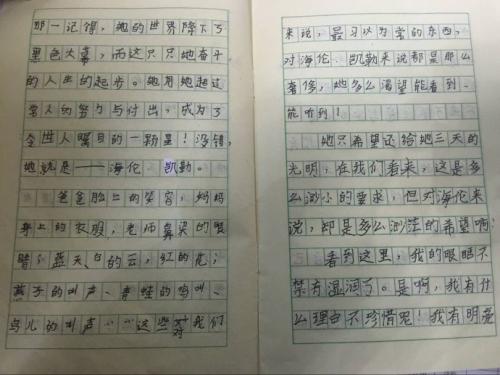 那一记得，她的世界降下了
黑色大幕，而这只只她奋斗
的人生的起步。她用她超过
常人的努力与付出，成为了
令世人瞩目的一颗星！没错，
她就是——海伦 凯勒。
爸爸脸上的笑容，妈妈
身上的衣服，老师鼻梁的眼
镜；蓝天、白的云，红的花；
燕子的叫声、青蛙的鸣叫、
鸟儿的叫声……这些对我们
来说，最习以为常的东西，
对海伦 凯勒来说都是那么
奢侈，她多么渴望能看到、
能听到！
她只希望还给她三天的
光明，在我们看来，这是多
么渺小的要求，但对海伦来
说，却是多么渺茫的希望啊！
看到这里，我的眼睛不
禁有湿润了。是啊，我有什
么理由不珍惜呢！我有明亮